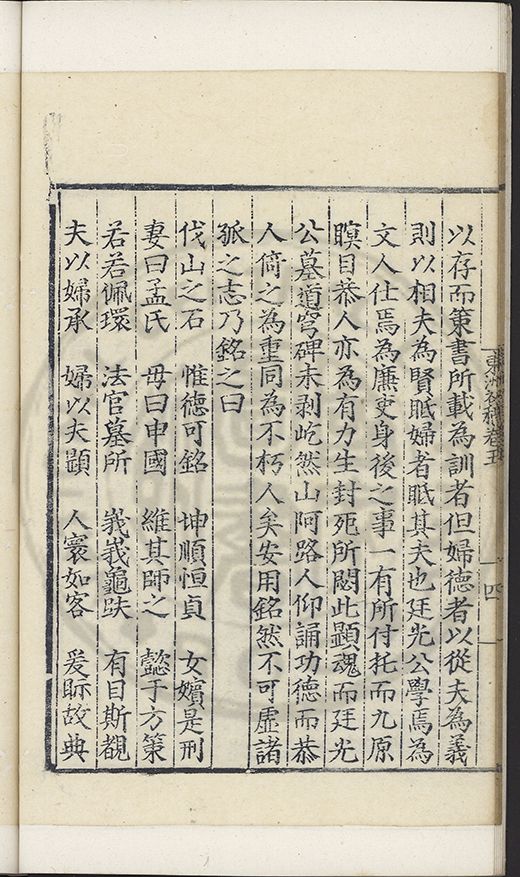 東洲初稿卷五
四
以存而策書所載為訓者但婦德者以從夫為義
則以相夫為賢眡婦者眡其夫也廷先公學焉為
文人仕焉為廉吏身後之事一有所付托而九原
瞑目恭人亦為有力生封死所閟此顯魂而廷先
公墓道穹碑未剥屹然山阿路人仰誦功德而恭
人倚之為重同為不朽人矣安用銘然不可虛諸
孤之志乃銘之曰
伐山之石 惟德可銘 坤順恒貞 女嬪是刑
妻曰孟氏 母曰申國 維其師之 懿于方策
若若佩環 法官墓所 峩峩龜趺 有目斯覩
夫以婦承 婦以夫顯 人寰如客 爰眎故典